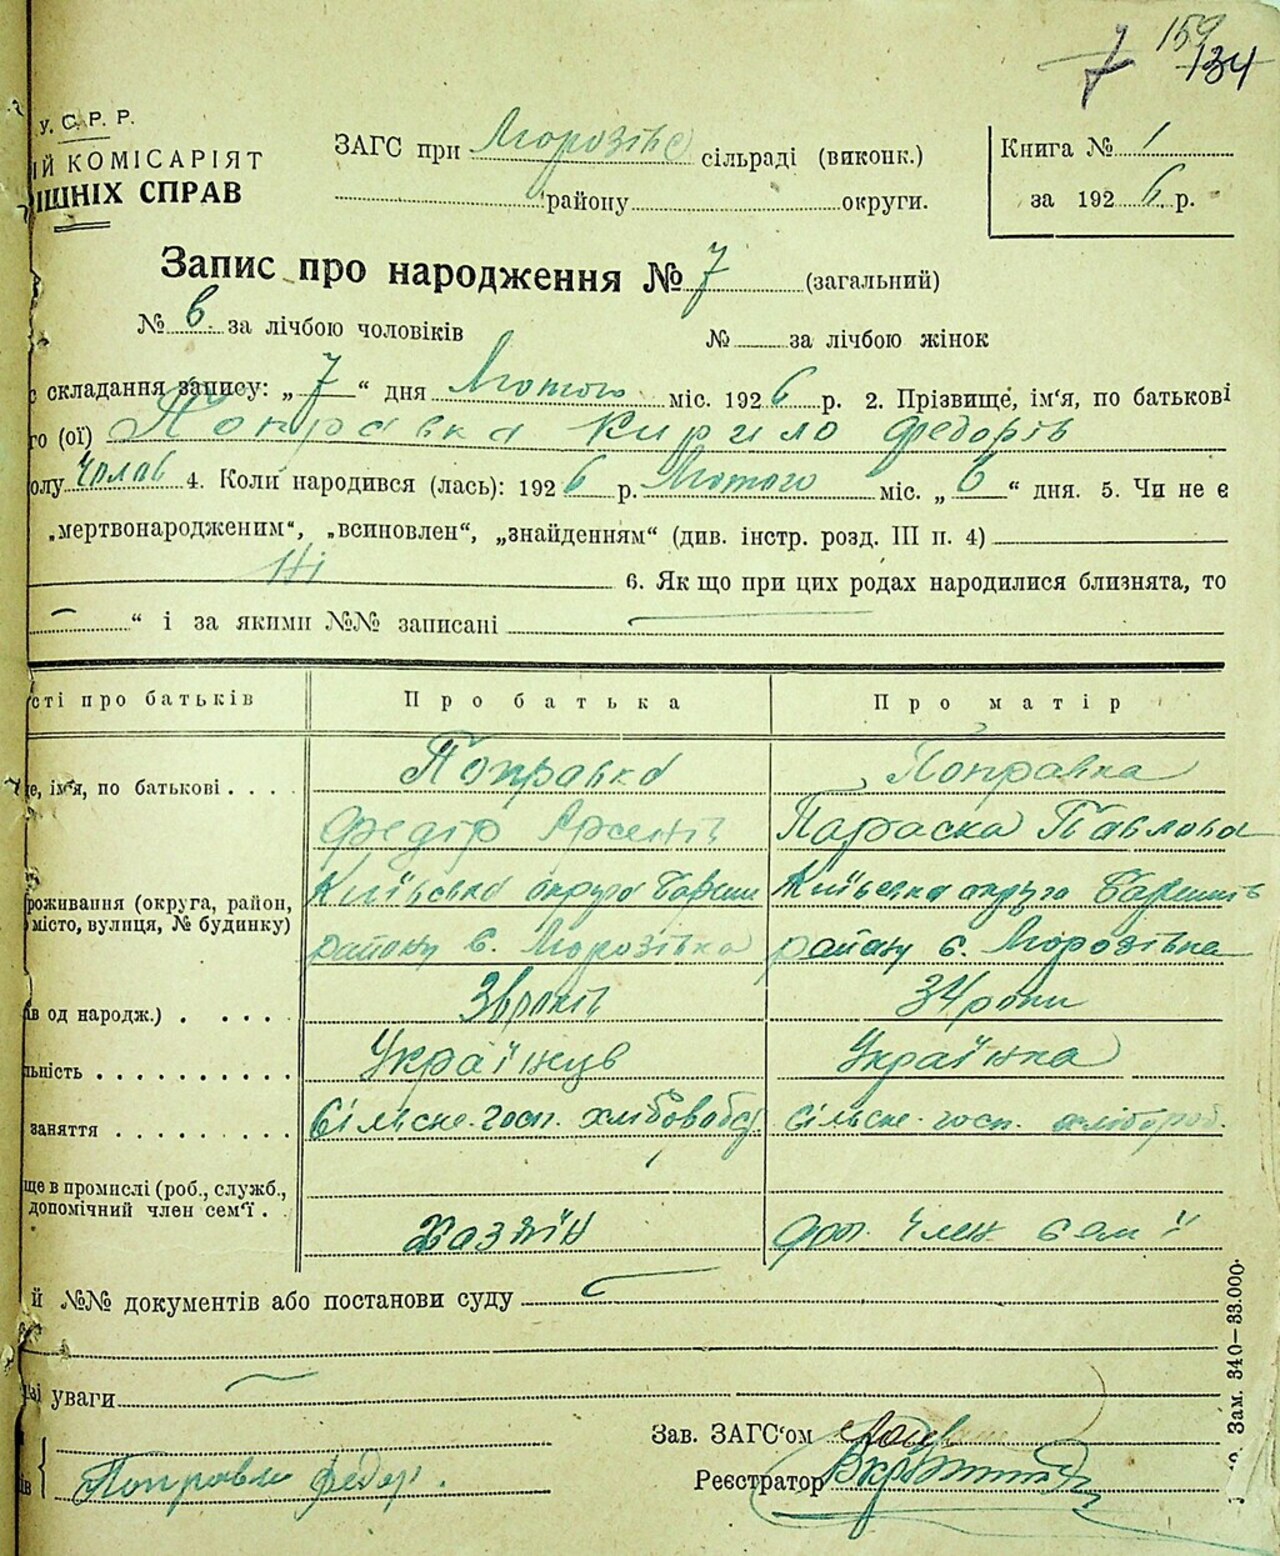 7 159 134
У. С. Р. Р.
ІЙ КОМІСАРІЯТ
ІШНІХ СПРАВ
ЗАГС при Морозівс сільраді (виконк.)
району округи.
Книга № 1
за 1926 р.
Запис про народження № 7 (загальний)
№ 6 за лічбою чоловіків № за лічбою жінок
складання запису: „7“ дня Лютого міс. 1926 р. 2. Прізвище, ім'я, по батькові
го (ої) Поправка Кирило Федорів
олу Чолов 4. Коли народився (лась): 1926 р. Лютого міс. „6“ дня. 5. Чи не є
„мертвонародженим“, „всиновлен“, „знайденням“ (див. інстр. розд. III п. 4)
Ні 6. Як що при цих родах народилися близнята, то
“ і за якими №№ записані
сті про батьків Про батька Про матір
е, ім'я, по батькові . . . . Поправка Поправка
Федір Арсенів Параска Павлова
роживання (округа, район, Київська округа Бориш Київська округа Боришів
місто, вулиця, № будинку) району с. Морозівка району с. Морозівка
ів од народж.) . . . . . 36 років 34 роки
льність . . . . . . . . . . Українць Українка
заняття . . . . . . . . . Сільске-госп. Сільске-госп. хлібороб.
ще в промислі (роб., служб.,
допомічний член сем'ї . . Хазяїн доп. член семї
й №№ документів або постанови суду
ші уваги
Зав. ЗАГС'ом
ів Поправка Федор. Реєстратор
Зам. 340—33.000.